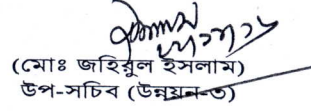 (মোঃ জহিরুল ইসলাম)
উপ-সচিব (উন্নয়ন-৩)